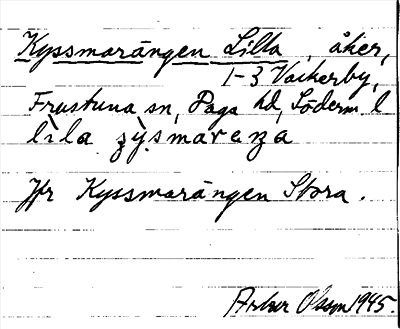 Kyssmarängen Lilla, åker,
1-3 Vackerby,
Frustuna sn, Daga hd, Söderm. l
lìla ʒýsmarɛŋa
Jfr Kyssmarängen Stora.
Arthur Olsson 1945.